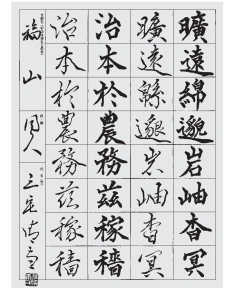 曠遠綿邈岩岫杳冥
曠遠緜邈岩岫杳冥
治本於農務茲稼穡
治本於農務茲稼穡
福山 同人 三宅